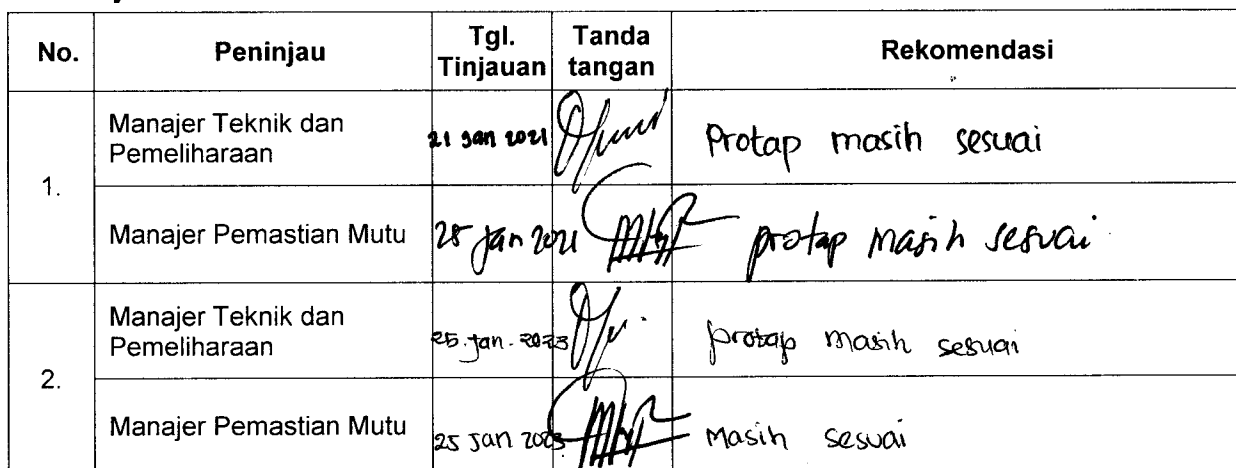 No. Peninjau Tgl. Tinjauan Tanda tangan Rekomendasi
1.
Manajer Teknik dan Pemeliharaan 21 Jan 2021 Protap masih sesuai
Manajer Pemastian Mutu Jan 2021 protap masih sesuai
2.
Manajer Teknik dan Pemeliharaan 25. Jan. 2023 protap masih sesuai
Manajer Pemastian Mutu 25 Jan 2023 Masih sesuai